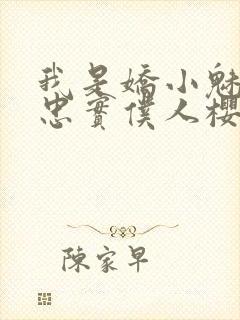 我是嬌小魅
忠實僕人櫻
陳家早